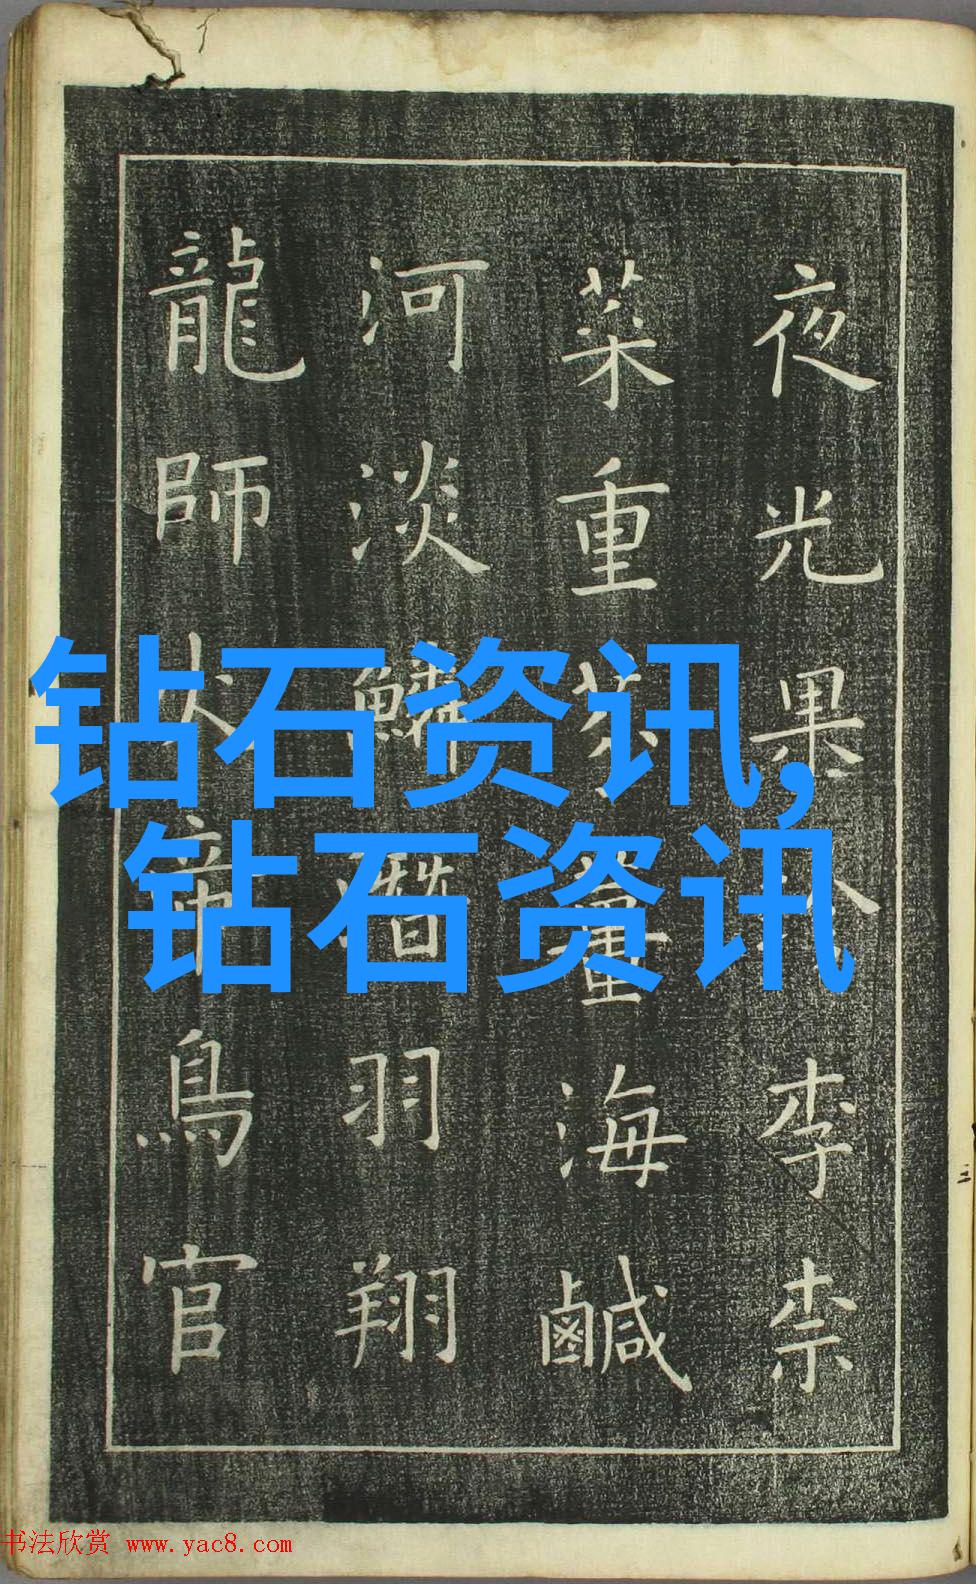 夜光果李柰
菜重芥薑海鹹
河淡鱗潛羽翔
龍師火帝鳥官
钻石资讯,
钻石资讯
书法欣赏 www.yac8.com